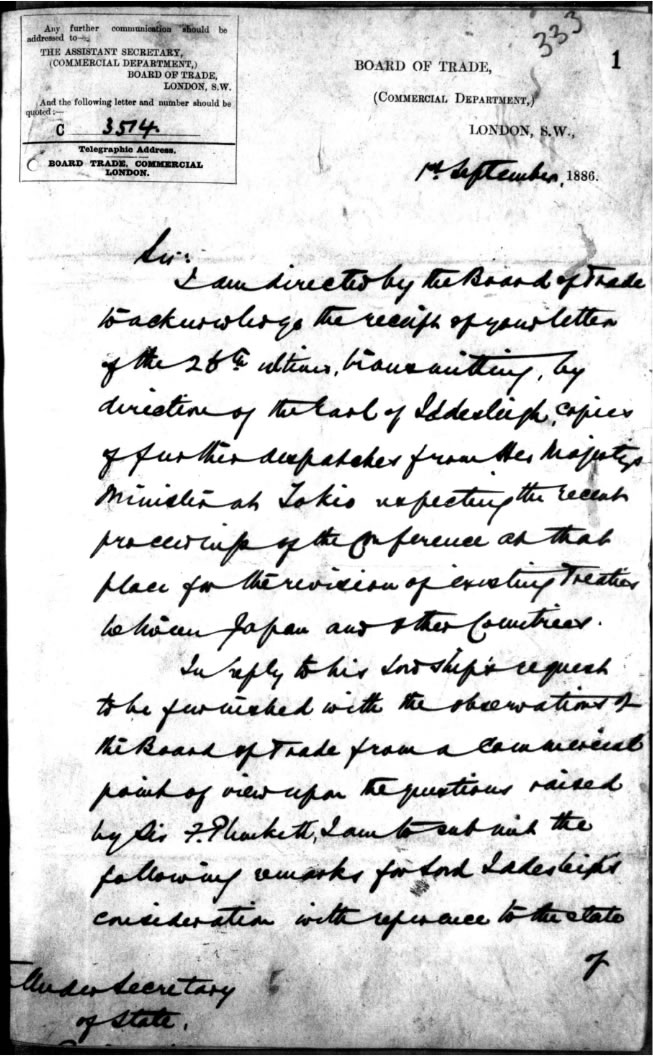 Any further communication should be
addressed to—
THE ASSISTANT SECRETARY,
(COMMERCIAL DEPARTMENT,)
BOARD OF TRADE,
LONDON, S.W.
And the following letter and number should be
quoted:—
C 3514
Telegraphic Address.
BOARD TRADE, COMMERCIAL
LONDON.
333
1
BOARD OF TRADE,
(COMMERCIAL DEPARTMENT,)
LONDON, S.W.,
1st September, 1886.
Sir:
I am directed by the Board of Trade
to acknowledge the receipt of your letter
of the 26th ultimo, transmitting, by
direction of the Earl of Iddesleigh, copies
of further despatches from Her Majesty's
Minister at Tokio respecting the recent
proceedings of the Conference at that
place for the revision of existing Treaties
between Japan and other Countries.
In reply to his Lordship's request
to be furnished with the observations of
the Board of Trade from a commercial
point of view upon the questions raised
by Sir F. Plunkett, I am to submit the
following remarks for Lord Iddesleigh's
consideration with reference to the state
of
Under Secretary
of State.